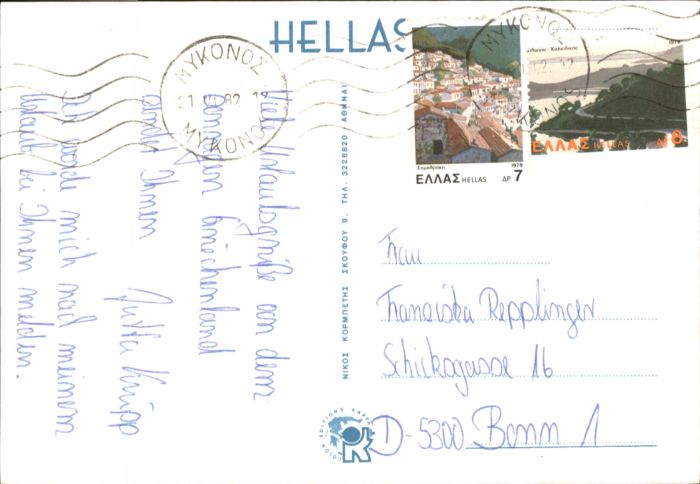 HELLAS
ΜΥΚΟΝΟΣ
82
ΜΥΚΟΝΟΣ
ΜΥΚΟΝΟΣ
ΜΥΚΟΝΟΣ
Σαμοθράκη 1979
ΕΛΛΑΣ HELLAS ΔΡ 7
1979
ΕΛΛΑΣ HELLAS ΔΡ 8
Viele Urlaubsgrüße aus dem
sonnigen Griechenland
sendet Ihnen
Jutta
Ich werde mich nach meinem
Urlaub bei Ihnen melden.
ΝΙΚΟΣ ΚΟΡΜΠΕΤΗΣ ΣΚΟΥΦΟΥ 9. ΤΗΛ. 3228820 - ΑΘΗΝΑΙ
Frau
Franziska Repplinger
Schickgasse 16
D-5300 Bonn 1
COLOR EDITIONS